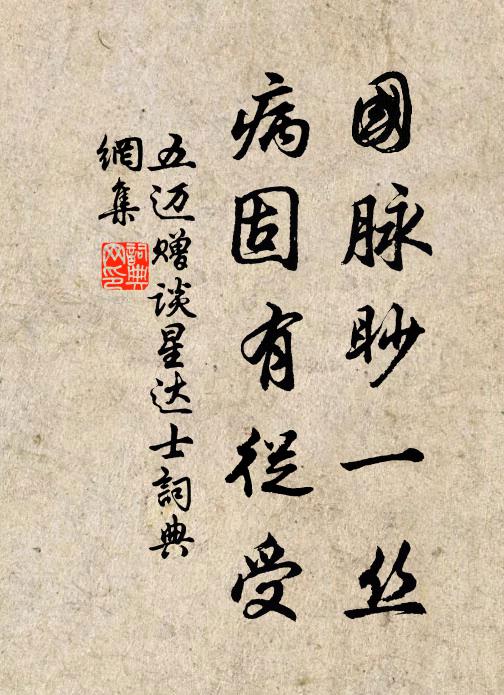 國脉眇一丝
病固有從受
五迈赠谈星达士詞典
網集
詞典
网印